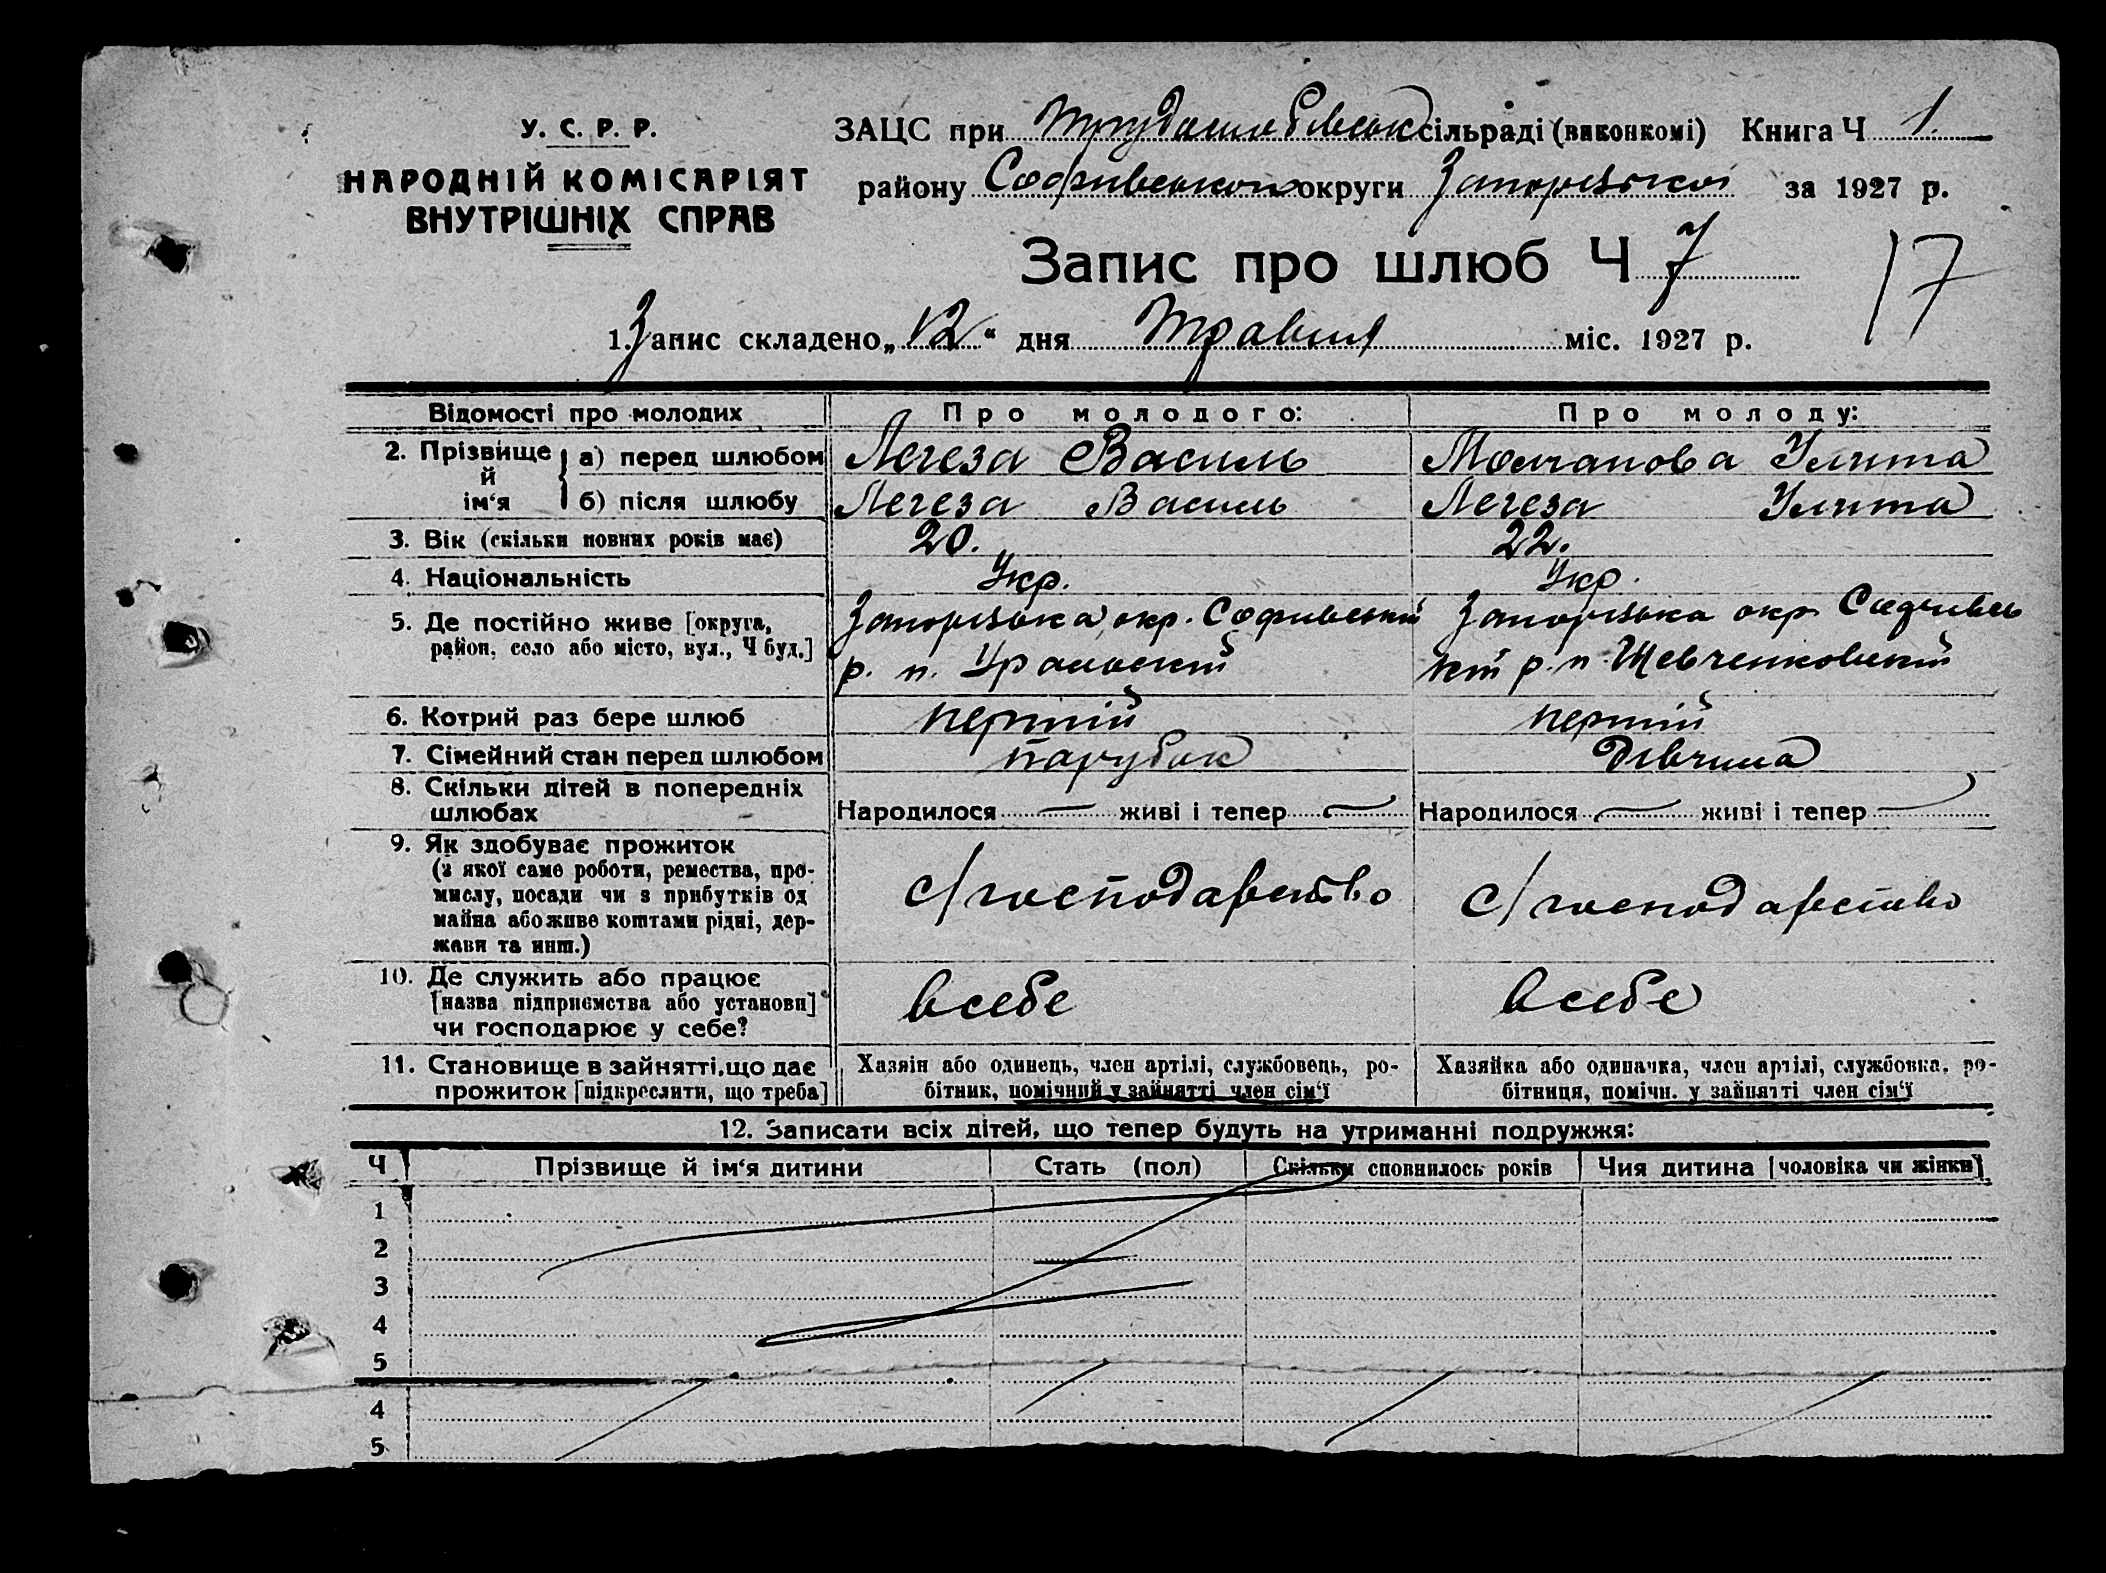 У. С. Р. Р.
НАРОДНІЙ КОМІСАРІЯТ
ВНУТРІШНІХ СПРАВ
ЗАЦС при сільраді (виконкомі) Книга Ч 1.
району Софиевського округи Запорізької за 1927 р.
Запис про шлюб Ч 7
17
1. Запис складено „12“ дня Травня міс. 1927 р.
Відомості про молодих
Про молодого:
Про молоду:
2. Прізвище й ім‘я
а) перед шлюбом
Легеза Василь
Молчанова Улита
б) після шлюбу
Легеза Василь
Легеза Улита
3. Вік (скільки повних років має)
20.
22.
4. Національність
Укр.
Укр.
5. Де постійно живе [округа,
район, село або місто, вул., Ч буд.]
Запорізька окр. Софиевський
р. п. Уральский
Запорізька окр.
кий р. п. Шевченковский
6. Котрий раз бере шлюб
перший
перший
7. Сімейний стан перед шлюбом
парубок
Дівчина
8. Скільки дітей в попередніх
шлюбах
Народилося — живі і тепер —
Народилося — живі і тепер —
9. Як здобуває прожиток
(з якої саме роботи, ремества, про-
мислу, посади чи з прибутків од
майна або живе коштами рідні, дер-
жави та инш.)
с/господарство
с/господарство
10. Де служить або працює
[назва підприємства або установи]
чи господарює у себе?
в себе
в себе
11. Становище в зайнятті, що дає
прожиток [підкреслити, що треба]
Хазяїн або одинець, член артілі, службовець, ро-
бітник, помічний у зайнятті член сім‘ї
Хазяйка або одиначка, член артілі, службовка, ро-
бітниця, помічн. у зайнятті член сім‘ї
12. Записати всіх дітей, що тепер будуть на утриманні подружжя:
Ч Прізвище й ім‘я дитини Стать (пол) Скільки сповнилось років Чия дитина [чоловіка чи жінки]
1
2
3
4
5
4
5